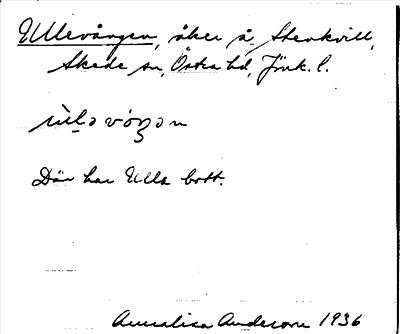 Ullevången, åker å Stenkvill,
Skede sn, Östra hd, Jönk. l.
Där har Ulla bott.
Annalisa Anderson 1936